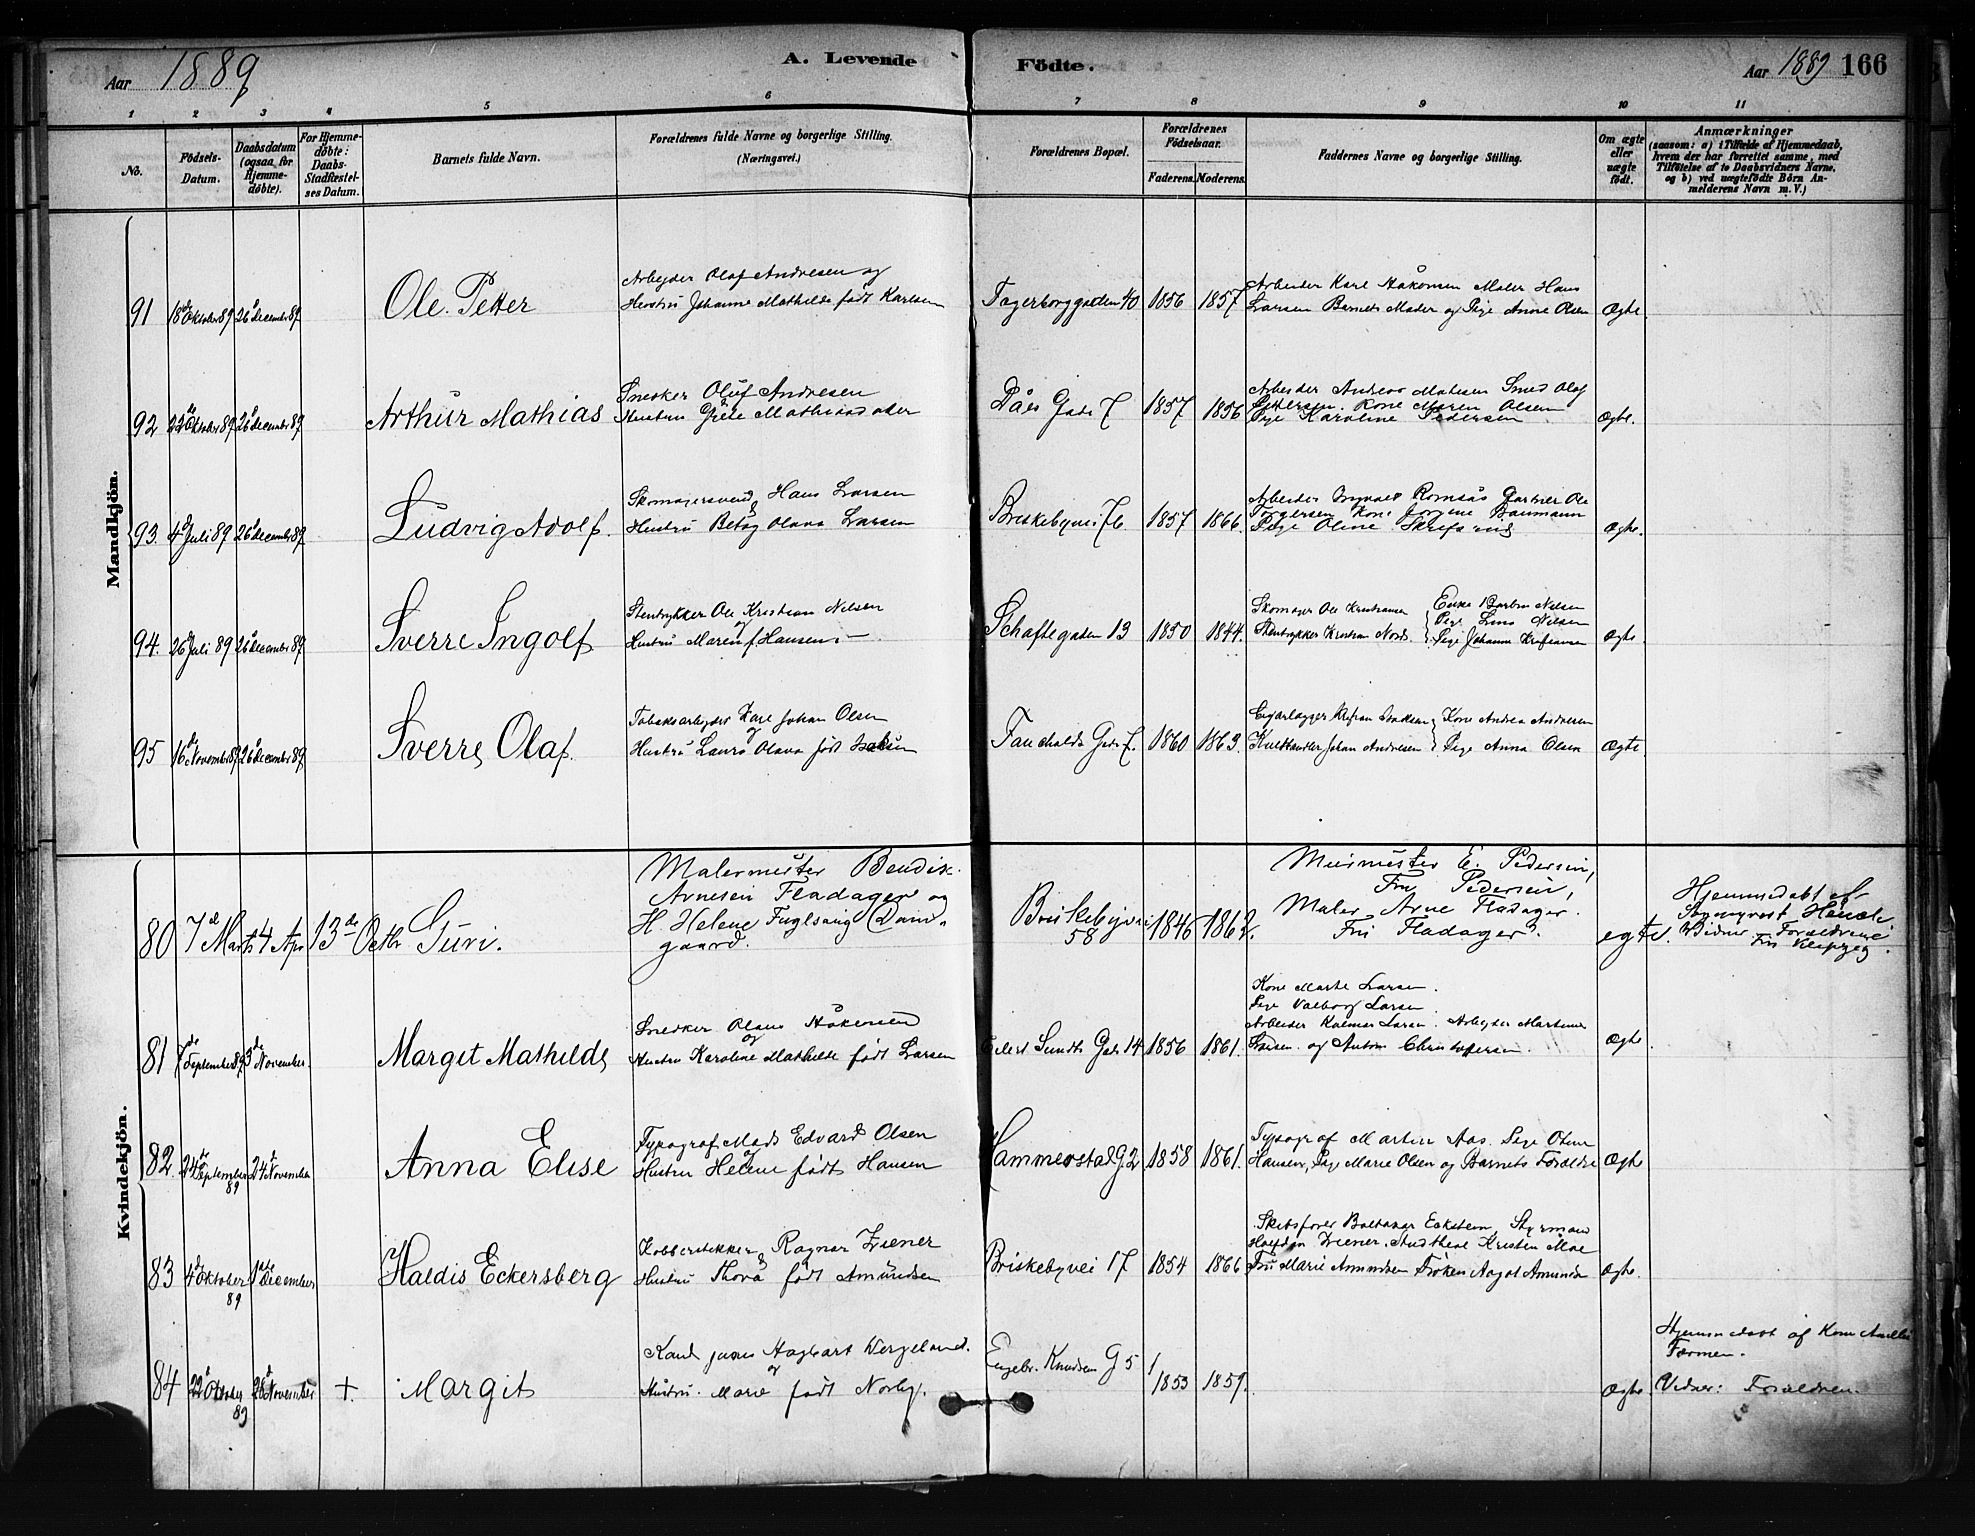 Aar 1889
A. Levende Födte.
Aar 1889 166
1 2 3 4 5 6 7 8 9 10 11
No.
Födsels-Datum.
Daabsdatum (ogsaa for Hjemme-døbte).
For Hjemme-døbte: Daabs-Stadfæstel-ses Datum.
Barnets fulde Navn.
Forældrenes fulde Navne og borgerlige Stilling.
(Næringsvei.)
Forældrenes Bopæl.
Forældrenes Fødselsaar.
Faderens. Moderens.
Faddernes Navne og borgerlige Stilling.
Om ægte eller uægte født.
Anmærkninger
(saasom: a) i Tilfælde af Hjemmedaab,
hvem der har forrettet samme, med
Tilføielse af to Daabsvidners Navne,
og b) ved uægtefødte Börn An-
melderens Navn m. V.)
Mandkjön.
91 18de Oktober 89 26 december 89 Ole Petter
Arbeider Olaf Andresen og
Hustru Johanne Mathilde født Karlsen
Fagerborggaden 40 1856 1857
Arbeider Karl Håkonsen Maler Hans
Larsen Barnets Moder og Pige Anne Olsen
Ægte
92 22 Oktober 89 26 december 89 Arthur Mathias
Snedker Oluf Andresen
Hustru Grete Mathiasdatter
Dåes Gade 7 1857 1856
Arbeider Andreas Mathisen Smed Olaf
Pettersen. Kone Maren Olsen
Pige Karoline Pedersen
Ægte.
93. 4 Juli 89 26 december 89 Ludvig Adolf.
Skomagersvend Hans Larsen
& Hustru Betsy Olava Larsen
Briskebyvei 76 1857 1866.
Arbeider Ingvald Romsås Gartner Ole
Torgersen Kone Jorgine Baumann
Pige Oline Skrefsrud
Ægte.
94. 26 Juli 89 26 december 89 Sverre Ingolf
Stentrykker Ole Kristian Nilsen
og Hustru Maren f. Hansen.
Schaftegaden 13 1850 1844.
Skomager Ole Kristiansen
Stentrykker Kristian Nords.
Enke Barbra Nilsen
Pige Lina Nilsen
Pige Johanne Kristiansen
Ægte
95 16de November 89 26 december 89 Sverre Olaf.
Tobaksarbeyder Karl Johan Olsen
og Hustru Laura Olava født Isaksen
Fauchalds Gade 7. 1860 1863.
Kone Andrea Andresen
Kulhandler Johan Andresen Pige Anna Olsen
Ægte
Kvindekjön.
80 7d Marts 4 Apr 13de Octbr. Guri.
Malermester Bendix
Arnesen Fladager og
H. Helene Fuglsang (Dam-
gaard.
Briskebyvei
58 1846 1862.
Murmester E. Pedersen,
Fru Pedersen,
Maler Arne Fladager.
Fru Fladager.
egte.
Hjemmedøbt af
Sogneprest Heuch
Vidner Forældrene
81 7de September 89 3de November. Margit Mathilde
Snedker Olaus Håkensen
og Hustru Karoline Mathilde født Larsen
Eilert Sundts Gade 14 1856 1861.
Kone Marte Larsen.
Pige Valborg Larsen.
Arbeider Kolmar Larsen. Arbeyder Martinus
Larsen og Anton Christofersen.
Ægte.
82. 24de September 89 24 November Anna Elise
Typograf Mads Edvard Olsen
og Hustru Helene født Hansen
Hammerstad G 2 1858 1861.
Typograf Martin Aas. Pige Oline
Hansen, Pige Marie Olsen og Barnets Forældre
Ægte
83 4de Oktober 89 1ste December Haldis Eckersberg
Kobberstikker Ragnar Ziener
& Hustru Thora født Amundsen
Briskebyvei 17 1854 1866
Skibsfører Baltazar Eckstein, Styrmand
Halfdan Ziener. Stud theol Kristen Moe
Fru Marie Amundsen Frøken Aagot Amundsen
Ægte.
84 22 Oktober 89 28 November + Margit
Hagbart Wergeland.
og Hustru Marie født Norby.
Engebr. Knudsens G 5 1853 1859.
Ægte
Hjemmedøbt af Kone Amelie
Formen.
Vidner: Forældrene.